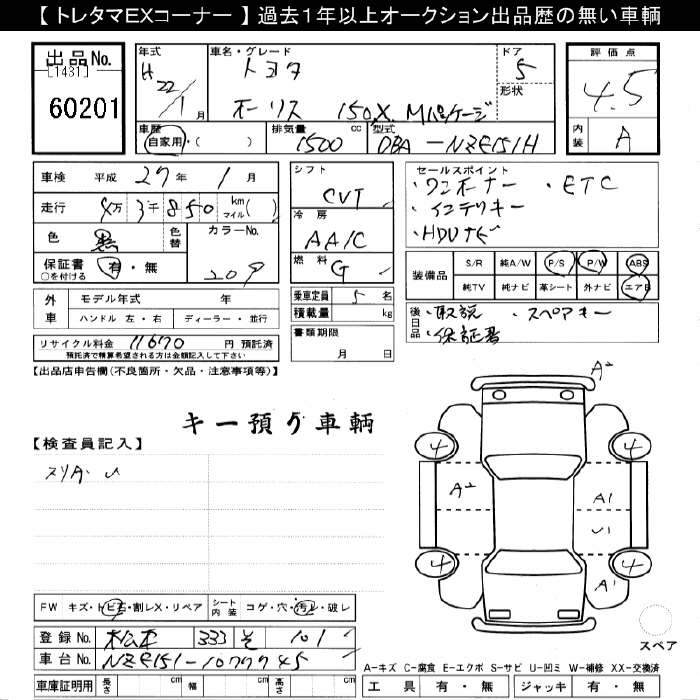 【 トレタマEXコーナー 】 過去1年以上オークション出品歴の無い車輌
出品No.
［1431］
60201
年式 車名・グレード ドア 評価点
H22/1月 トヨタ 5 4.5
形状
オーリス 150X Mパッケージ
内装 A
車歴 自家用・( ) 排気量 1500 cc 型式 DBA-NZE151H
車検 平成 27年 1月
走行 4万 3千 850 km マイル( )
色 黒 色替 カラーNo. 209
保証書 ○を付ける 有・無
シフト CVT
冷房 AA/C
燃料 G
セールスポイント
・ワンオーナー ・ETC
・インテリキー
・HDDナビ
装備品 S/R 純A/W P/S P/W ABS
純TV 純ナビ 革シート 外ナビ エアB
外車 モデル年式 年
ハンドル 左・右 ディーラー・並行
乗車定員 5 名
積載量 kg
後日品 ・取説 ・スペアキー
・保証書
リサイクル料金 11670 円 預託済
預託済で精算希望される方は金額記入して下さい
書類期限
月 日
【出品店申告欄(不良箇所・欠品・注意事項等)】
キー預り車輌
【検査員記入】
スリA・U
A2
4 4
A2 A1
U1
4 4
A1
スペア
FW キズ・トビ石・割レX・リペア シート内装 コゲ・穴・汚レ・破レ
登録No. 松本 333 そ 101
車台No. NZE151-1077745
車庫証明用 長さ cm 幅 cm 高さ cm
A-キズ C-腐食 E-エクボ S-サビ U-凹ミ W-補修 XX-交換済
工具 有・無 ジャッキ 有・無